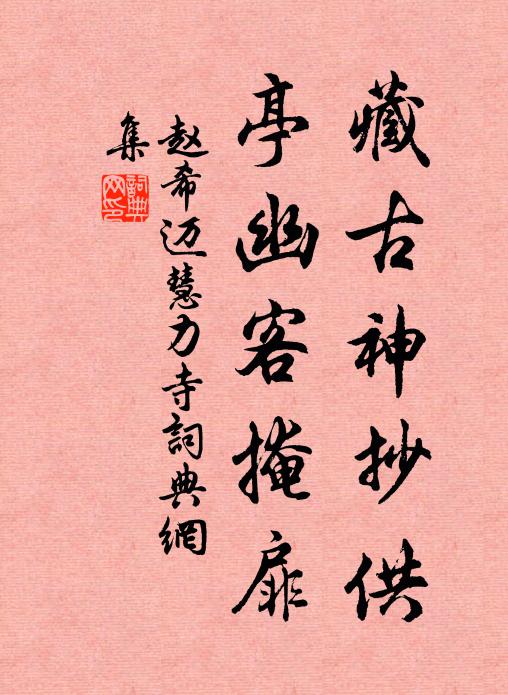 藏古神抄供
亭幽客掩扉
赵希迈慧力寺詞典網
集
詞典
网印